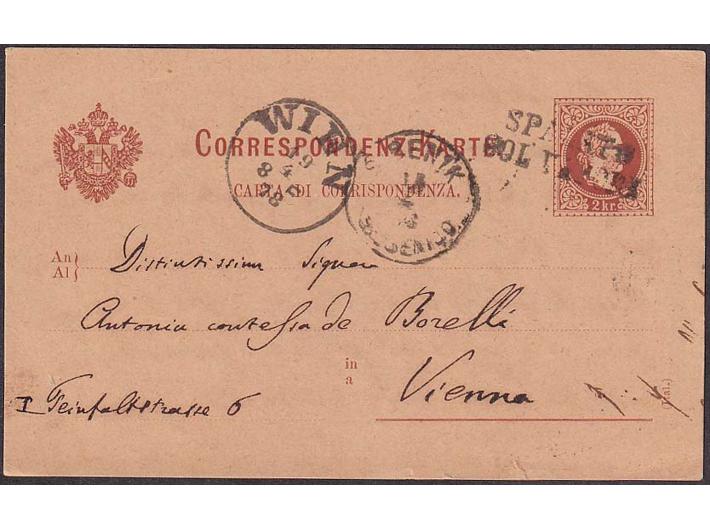 WIEN
19
8 4
88
CORRESPONDENZ-KARTE
CARTA DI CORRISPONDENZA.
SEBENICO
2 kr.
An
Al
Distintissima Signora
Antonia contessa de Borelli
in
a
Vienna
I Feinfaltstrasse 6
(Ital.)